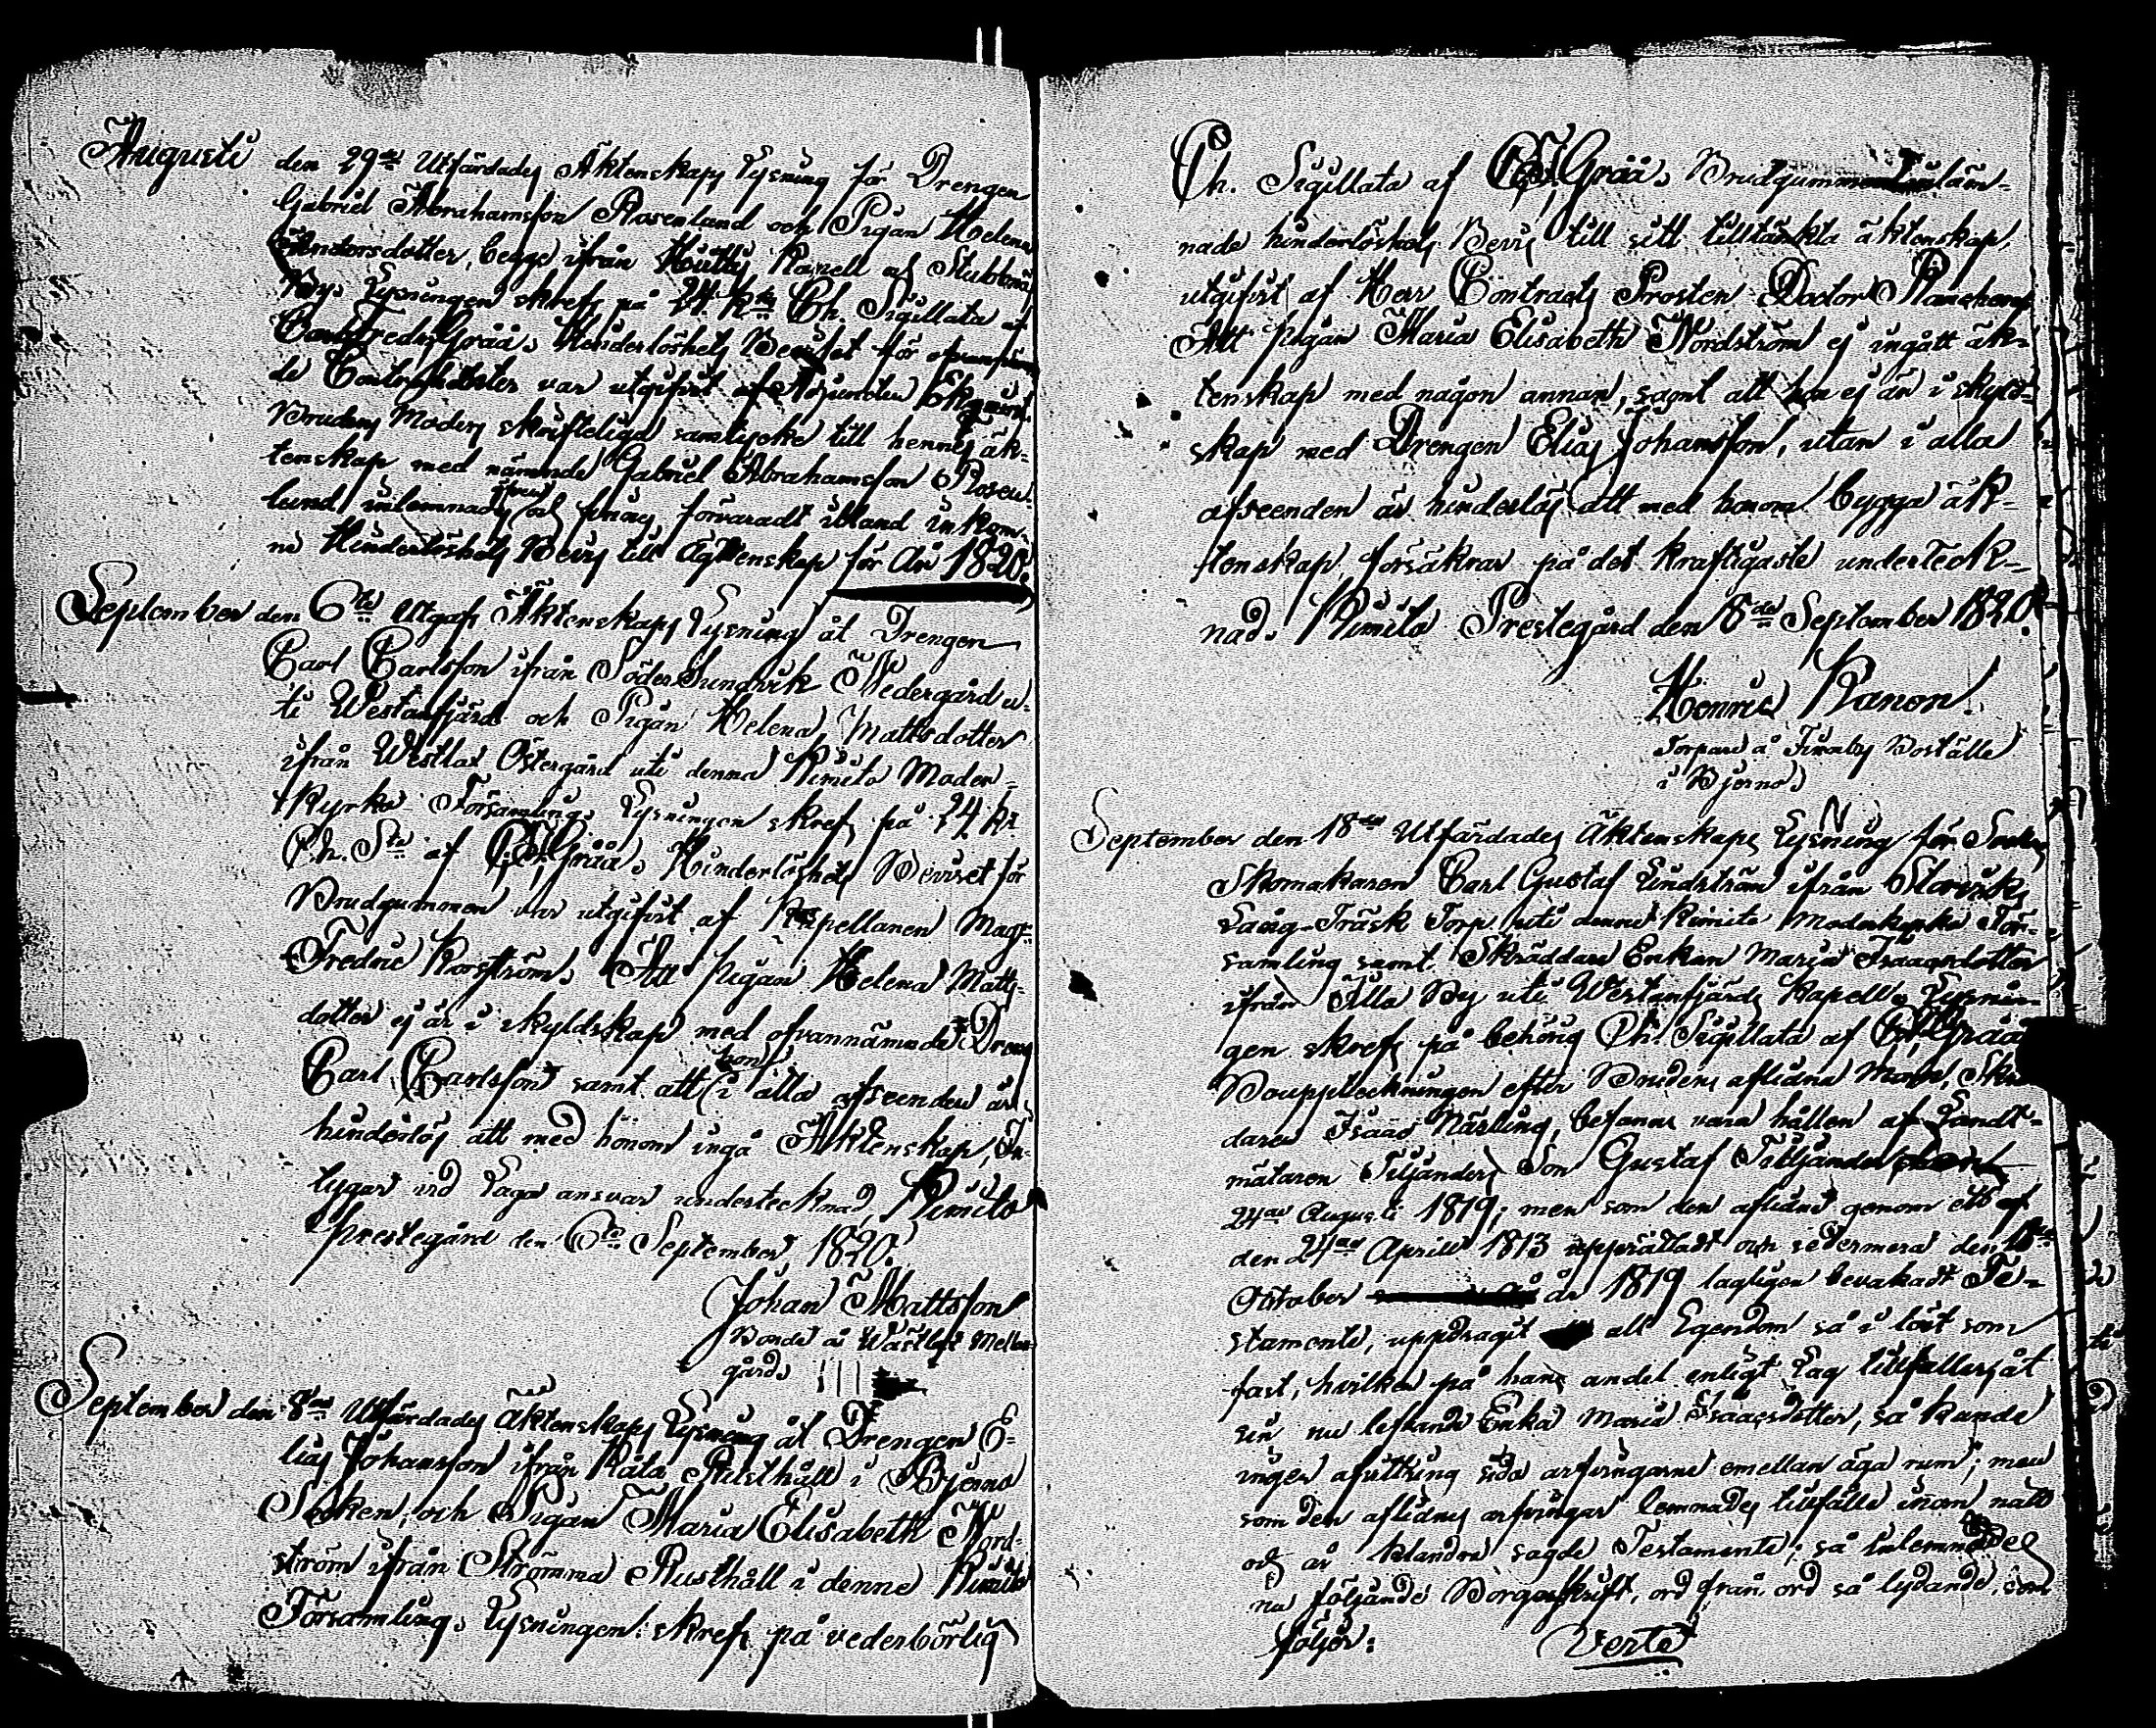 Augusti den 29de Utfärdades Äktenskaps Lysning för Drengen
Gabriel Abrahamsson Rosenlund och Pigan Helena
Andersdotter, begge ifrån Kapell af Stubbnäs
By. Lysningen skrefs på 24 k:rs Ch. Sigillata af
Carl Fredr. Grää. Hinderlöshets Beviset för
de Contrahenter var utgifvit af Adjuncten Ekqvist.
Brudens Moders skrifteliga samtycke till hennes äk-
tenskap med nämnde Gabriel Abrahamsson Rosen-
lund inlemnades och finnes förvaradt ibland inkom-
ne Hinderlöshets Bevis till Ägtenskap för År 1820.
September den 6te Utgafs Äktenskaps Lysning åt Drengen
Carl Carlsson ifrån Söder Sundvik Nedergård u-
ti Westanfjärd och Pigan Helena Mattsdotter
ifrån Westlax Östergård uti denna Kimito Moder-
kyrko Församling. Lysningen skrefs på 24 kr
Ch. Sta af C. F. Grää. Hinderlöshets Beviset för
Brudgummen var utgifvit af Kapellanen Mag:r
Fredric Korsström. Att pigan Helena Matts-
dotter ej är i skyldskap med ofvannämnde Dreng
Carl Carlsson samt att hon i alla afseenden är
hinderlös att med honom ingå Äktenskap, In-
tygar vid Laga answar undertecknad, Kimito
prestegård den 6te September 1820.
Johan Mattsson
Bonde å Wästlax Mellan-
gård.
September den 8de Utfärdades Äktenskaps Lysning åt Drengen E-
lias Johansson ifrån Råta Rusthåll i Bjerno
Socken, och Pigan Maria Elisabeth Nord-
ström ifrån Strömma Rusthåll i denne Kimito
Församling. Lysningen skrefs på vederbörlig
Ch. Sigillata af C. F. Grää. Brudgummen inläm-
nade hinderlöshets Bevis till sitt tilltänkta äktenskap,
utgifvit af Herr Contracts Prosten Doctor
Att pigan Maria Elisabeth Nordström ej ingått äk-
tenskap med någon annan, samt att hon ej är i skyld-
skap med Drengen Elias Johansson, utan i alla
afseenden är hinderlös att med honom bygga äk-
tenskap, försäkrar på det kraftigaste underteck-
nad. Kimito Prestegård den 8de September 1820.
Henric Kanon.
Torpare å Finnby Boställe
i Bjerno.
September den 18de Utfärdades Äktenskaps Lysning för Sockne
Skomakaren Carl Gustaf Lindström ifrån Storviks
Saäg-Träsk Torp uti denne Kimito Moderkyrko För-
samling samt Skräddare Enkan Maria Isaacsdotter
ifrån Illa By uti Westanfjärds Kapell. Lysnin-
gen skrefs på behörig Ch. Sigillata af C. F. Grää
Bouppteckningen efter Brudens aflidna Man, Skräd-
daren Isaac Närling, befanns vara hållen af Landt-
mätaren Siljanders Son Gustaf Siljander
24de Augusti 1819; men som den aflidne genom ett af
den 24de Aprill 1813 upprättadt och sedermera den
October år 1819 lagligen bevakadt Te-
stamente, uppdragit all Egendom så i löst som
fast, hvilken på hans andel enligt Lag tillfaller, åt
sin nu lefvande Enka Maria Isaacsdotter, så kunde
ingen afvittring sido arfvingarne emellan äga rum; men
som den aflidnes arfvingar lemnades tillfälle inom natt
och år klandra sagde Testamente; så inlemnades
nu följande Borgenskrift, ord från ord så lydande, som
följer:
Verte